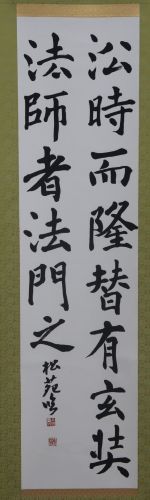 沿時而隆替有玄奘
法師者法門之
松苑